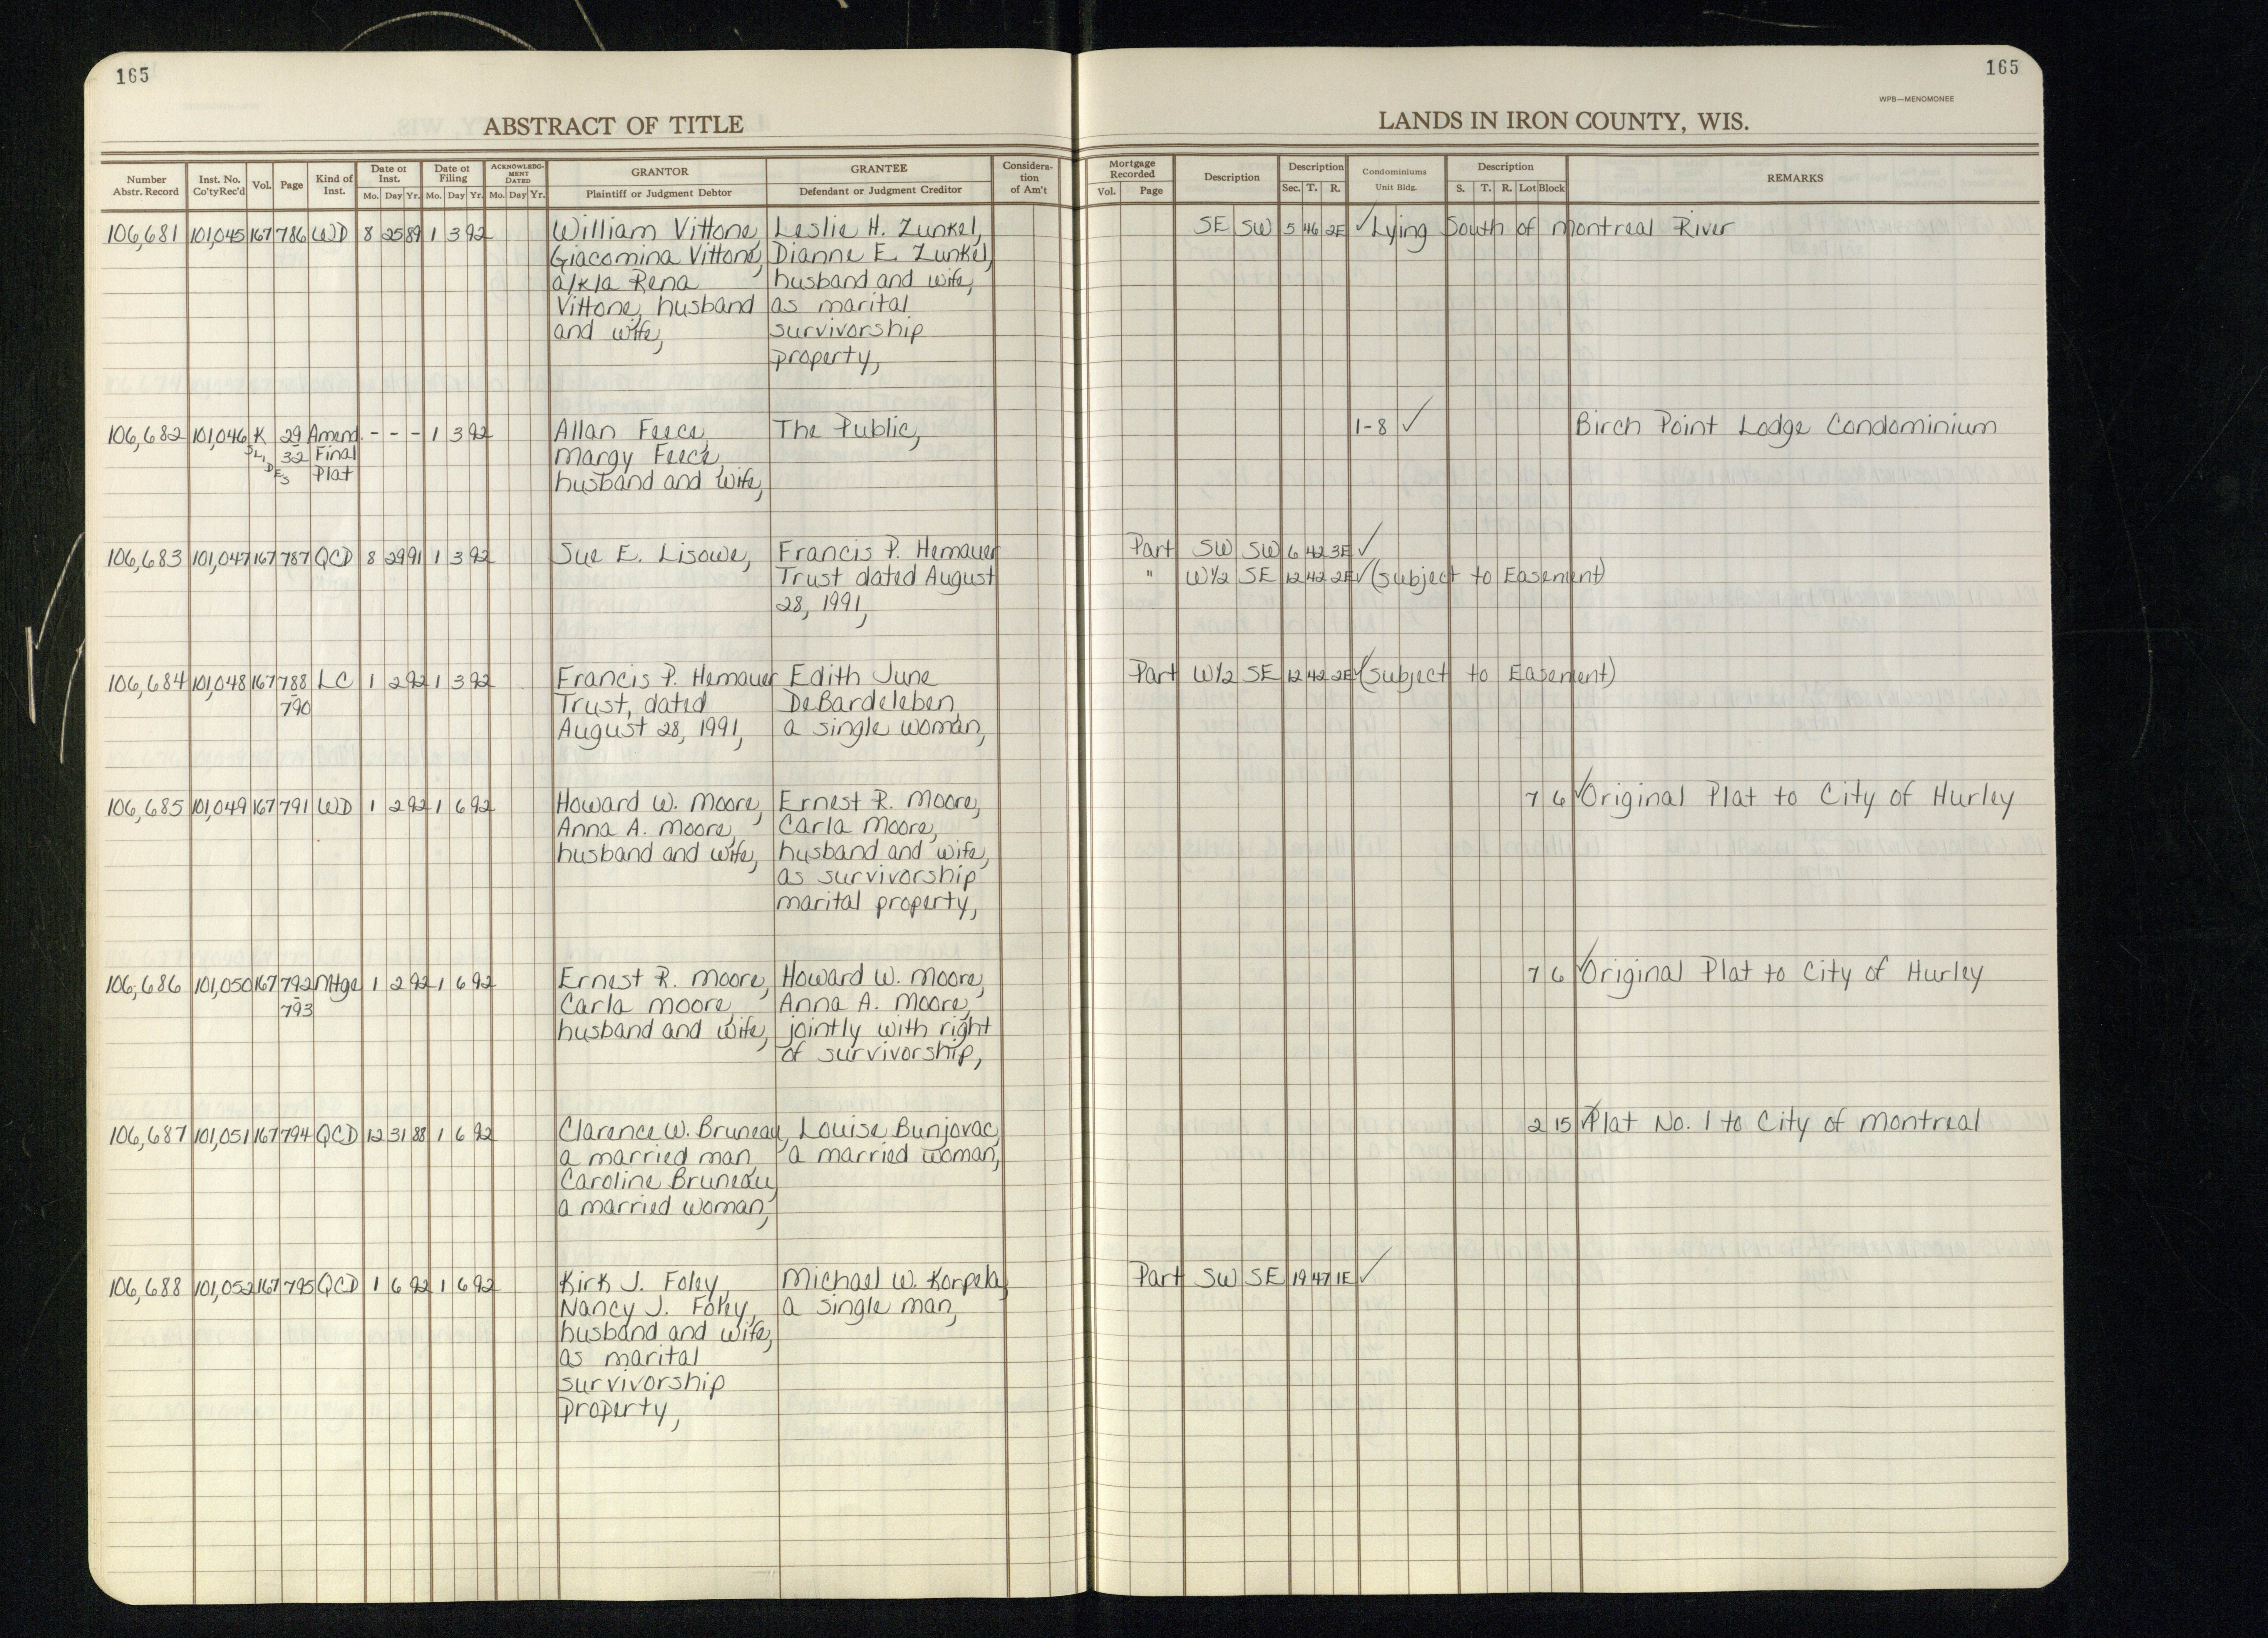 165
165
WPB—MENOMONEE
ABSTRACT OF TITLE
LANDS IN IRON COUNTY, WIS.
Number Abstr. Record | Inst. No. Co'ty Rec'd | Vol. | Page | Kind of Inst. | Date of Inst. Mo. Day Yr. | Date of Filing Mo. Day Yr. | ACKNOWLEDGMENT DATED Mo. Day Yr. | GRANTOR Plaintiff or Judgment Debtor | GRANTEE Defendant or Judgment Creditor | Consideration of Am't | Mortgage Recorded Vol. Page | Description | Description Sec. T. R. | Condominiums Unit Bldg. | Description S. T. R. Lot Block | REMARKS
106,681 101,045 167 786 WD 8 25 89 1 3 92 William Vittone, Leslie H. Zunkel, SE SW 5 46 2E ✓ Lying South of Montreal River
Giacomina Vittone, Dianne E. Zunkel,
a/k/a Rena husband and wife,
Vittone, husband as marital
and wife, survivorship
property,
106,682 101,046 K 29 Amend. - - - 1 3 92 Allan Feece, The Public, 1-8 ✓ Birch Point Lodge Condominium
SLIDES 32 Final Margy Feece,
Plat husband and wife,
106,683 101,047 167 787 QCD 8 29 91 1 3 92 Sue E. Lisowe, Francis P. Hemauer Part SW SW 6 42 3E ✓
Trust dated August " W1/2 SE 12 42 2E ✓ (subject to Easement)
28, 1991,
106,684 101,048 167 788 LC 1 2 92 1 3 92 Francis P. Hemauer Edith June Part W1/2 SE 12 42 2E ✓ (subject to Easement)
- 790 Trust, dated DeBardeleben,
August 28, 1991, a single woman,
106,685 101,049 167 791 WD 1 2 92 1 6 92 Howard W. Moore, Ernest R. Moore, 7 6 ✓ Original Plat to City of Hurley
Anna A. Moore, Carla Moore,
husband and wife, husband and wife,
as survivorship
marital property,
106,686 101,050 167 792 Mtge 1 2 92 1 6 92 Ernest R. Moore, Howard W. Moore, 7 6 ✓ Original Plat to City of Hurley
- 793 Carla Moore, Anna A. Moore,
husband and wife, jointly with right
of survivorship,
106,687 101,051 167 794 QCD 12 31 88 1 6 92 Clarence W. Bruneau, Louise Bunjovac, 2 15 ✓ Plat No. 1 to City of Montreal
a married man, a married woman,
Caroline Bruneau,
a married woman,
106,688 101,052 167 795 QCD 1 6 92 1 6 92 Kirk J. Foley, Michael W. Korpela, Part SW SE 19 47 1E ✓
Nancy J. Foley, a single man,
husband and wife,
as marital
survivorship
property,